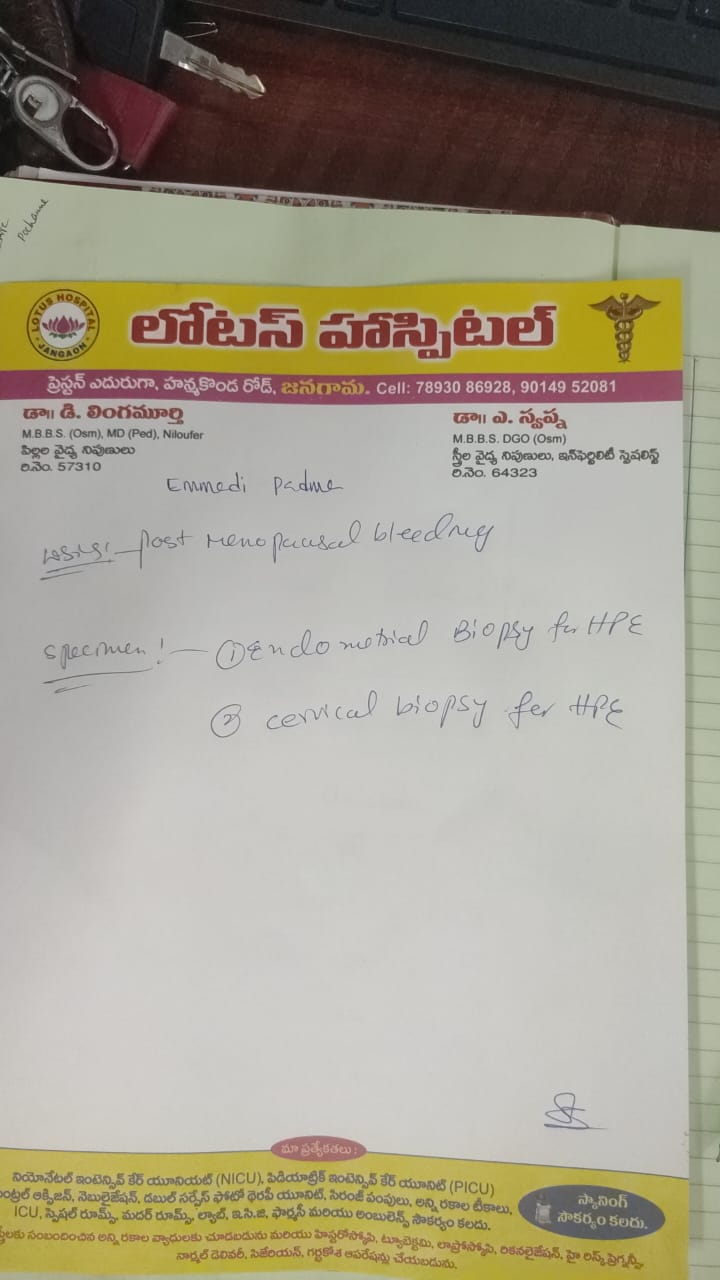 Pochamme
LOTUS HOSPITAL
JANGAON
లోటస్ హాస్పిటల్
ప్రెస్టన్ ఎదురుగా, హన్మకొండ రోడ్, జనగామ. Cell: 78930 86928, 90149 52081
డా॥ డి. లింగమూర్తి
M.B.B.S. (Osm), MD (Ped), Niloufer
పిల్లల వైద్య నిపుణులు
రి.నెం. 57310
డా॥ ఎ. స్వప్న
M.B.B.S. DGO (Osm)
స్త్రీల వైద్య నిపుణులు, ఇన్‌ఫెర్టిలిటీ స్పెషలిస్ట్
రి.నెం. 64323
Emmedi Padma
post menopausal bleeding
Specimen:- ① Endometrial Biopsy for HPE
② cervical biopsy for HPE
మా ప్రత్యేకతలు :
నియోనేటల్ ఇంటెన్సివ్ కేర్ యూనియట్ (NICU), పిడియాట్రిక్ ఇంటెన్సివ్ కేర్ యూనిట్ (PICU)
ఆక్సిజన్, నెబులైజేషన్, డబుల్ సర్ఫేస్ ఫోటో థెరపీ యూనిట్, సిరంజ్ పంపులు, అన్ని రకాల టీకాలు,
ICU, స్పెషల్ రూమ్స్, మదర్ రూమ్స్, ల్యాబ్, ఇ.సి.జి, ఫార్మసీ మరియు అంబులెన్స్ సౌకర్యం కలదు.
స్కానింగ్
సౌకర్యం కలదు.
సంబంధించిన అన్ని రకాల వ్యాధులకు చూడబడును మరియు హిస్టరోస్కోపి, ట్యూబెక్టమి, లాప్రోస్కోపి, రికనలైజేషన్, హై రిస్క్ ప్రెగ్నన్సీ,
నార్మల్ డెలివరీ, సిజేరియన్, గర్భకోశ ఆపరేషన్లు చేయబడును.